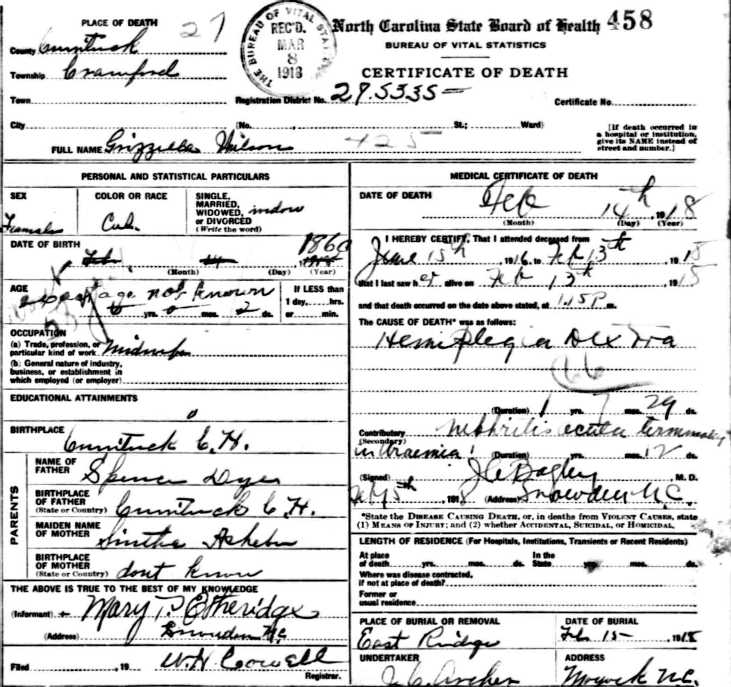 PLACE OF DEATH 27
County Currituck
Township Crawford
Town
City (No. , St.; Ward)
FULL NAME Grizzella Wilson 425
THE BUREAU OF VITAL STATISTICS
REC'D.
MAR
8
1918
North Carolina State Board of Health 458
BUREAU OF VITAL STATISTICS
CERTIFICATE OF DEATH
Registration District No. 27.5335 Certificate No.
[If death occurred in a hospital or institution, give its NAME instead of street and number.]
PERSONAL AND STATISTICAL PARTICULARS
SEX
Female
COLOR OR RACE
Col.
SINGLE, MARRIED, WIDOWED, OR DIVORCED (Write the word) widow
DATE OF BIRTH
Feb 14 1860
(Month) (Day) (Year)
AGE
exact age not known
yrs. mos. 2 ds.
IF LESS than 1 day, hrs. or min.
OCCUPATION
(a) Trade, profession, or particular kind of work Midwife
(b) General nature of industry, business, or establishment in which employed (or employer)
EDUCATIONAL ATTAINMENTS
0
BIRTHPLACE
Currituck C.H.
PARENTS
NAME OF FATHER Spencer Dyer
BIRTHPLACE OF FATHER (State or Country) Currituck C.H.
MAIDEN NAME OF MOTHER
BIRTHPLACE OF MOTHER (State or Country) dont know
THE ABOVE IS TRUE TO THE BEST OF MY KNOWLEDGE
(Informant) Mary P. Etheridge
(Address) Snowden N.C.
Filed , 19 W.H. Cowell
Registrar.
MEDICAL CERTIFICATE OF DEATH
DATE OF DEATH Feb 14th, 1918
(Month) (Day) (Year)
I HEREBY CERTIFY, That I attended deceased from
June 15th 1916 to Feb 13th 1918
that I last saw her alive on Feb 13th 1918
and that death occurred on the date above stated, at 1.15 P. m.
The CAUSE OF DEATH* was as follows:
Hemiplegia Dextra
66
(Duration) 1 yrs. 7 mos. 29 ds.
Contributory nephritis acuta terminating
(Secondary)
in Uraemia (Duration) yrs. mos. 12 ds.
(Signed) M. D.
1918 (Address) Snowden N.C.
*State the DISEASE CAUSING DEATH, or, in deaths from VIOLENT CAUSES, state
(1) MEANS OF INJURY; and (2) whether ACCIDENTAL, SUICIDAL, OR HOMICIDAL.
LENGTH OF RESIDENCE (For Hospitals, Institutions, Transients or Recent Residents)
At place of death yrs. mos. ds. In the State yrs. mos. ds.
Where was disease contracted, if not at place of death?
Former or usual residence
PLACE OF BURIAL OR REMOVAL
East Ridge
DATE OF BURIAL
Feb 15 1918
UNDERTAKER
J.C. Archer
ADDRESS
Moyock N.C.